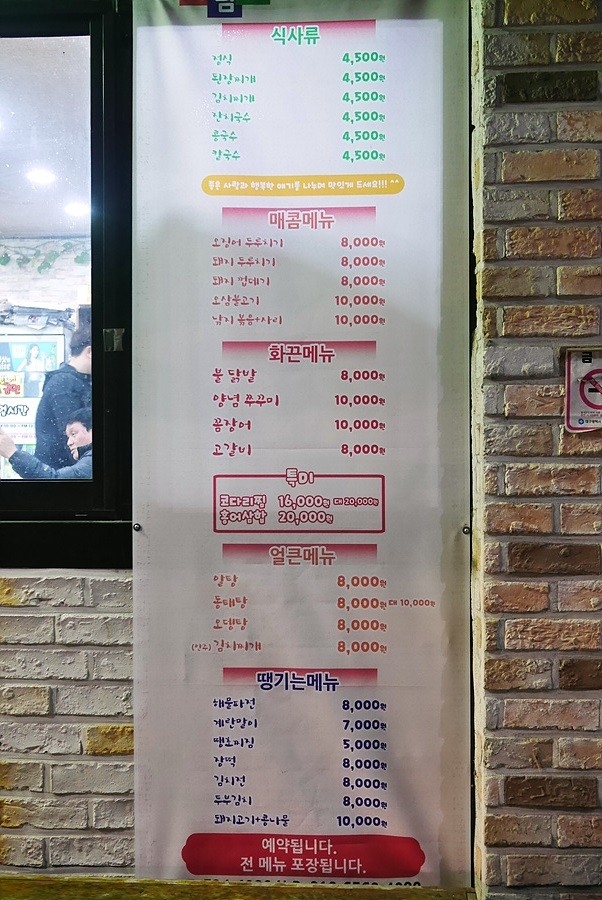 식사류
정식 4,500원
된장찌개 4,500원
김치찌개 4,500원
잔치국수 4,500원
콩국수 4,500원
칼국수 4,500원
좋은 사람과 행복한 얘기를 나누며 맛있게 드세요!!! ^^
매콤메뉴
오징어 두루치기 8,000원
돼지 두루치기 8,000원
돼지 껍데기 8,000원
오삼불고기 10,000원
낚지 볶음+사리 10,000원
화끈메뉴
불 닭발 8,000원
양념 쭈꾸미 10,000원
꼼장어 10,000원
고갈비 8,000원
특미
코다리찜 16,000원 대 20,000원
홍어삼합 20,000원
얼큰메뉴
알탕 8,000원
동태탕 8,000원 대 10,000원
오뎅탕 8,000원
(안주) 김치찌개 8,000원
땡기는메뉴
해물파전 8,000원
계란말이 7,000원
땡초찌짐 5,000원
장떡 8,000원
김치전 8,000원
두부김치 8,000원
돼지고기+콩나물 10,000원
예약됩니다.
전 메뉴 포장됩니다.